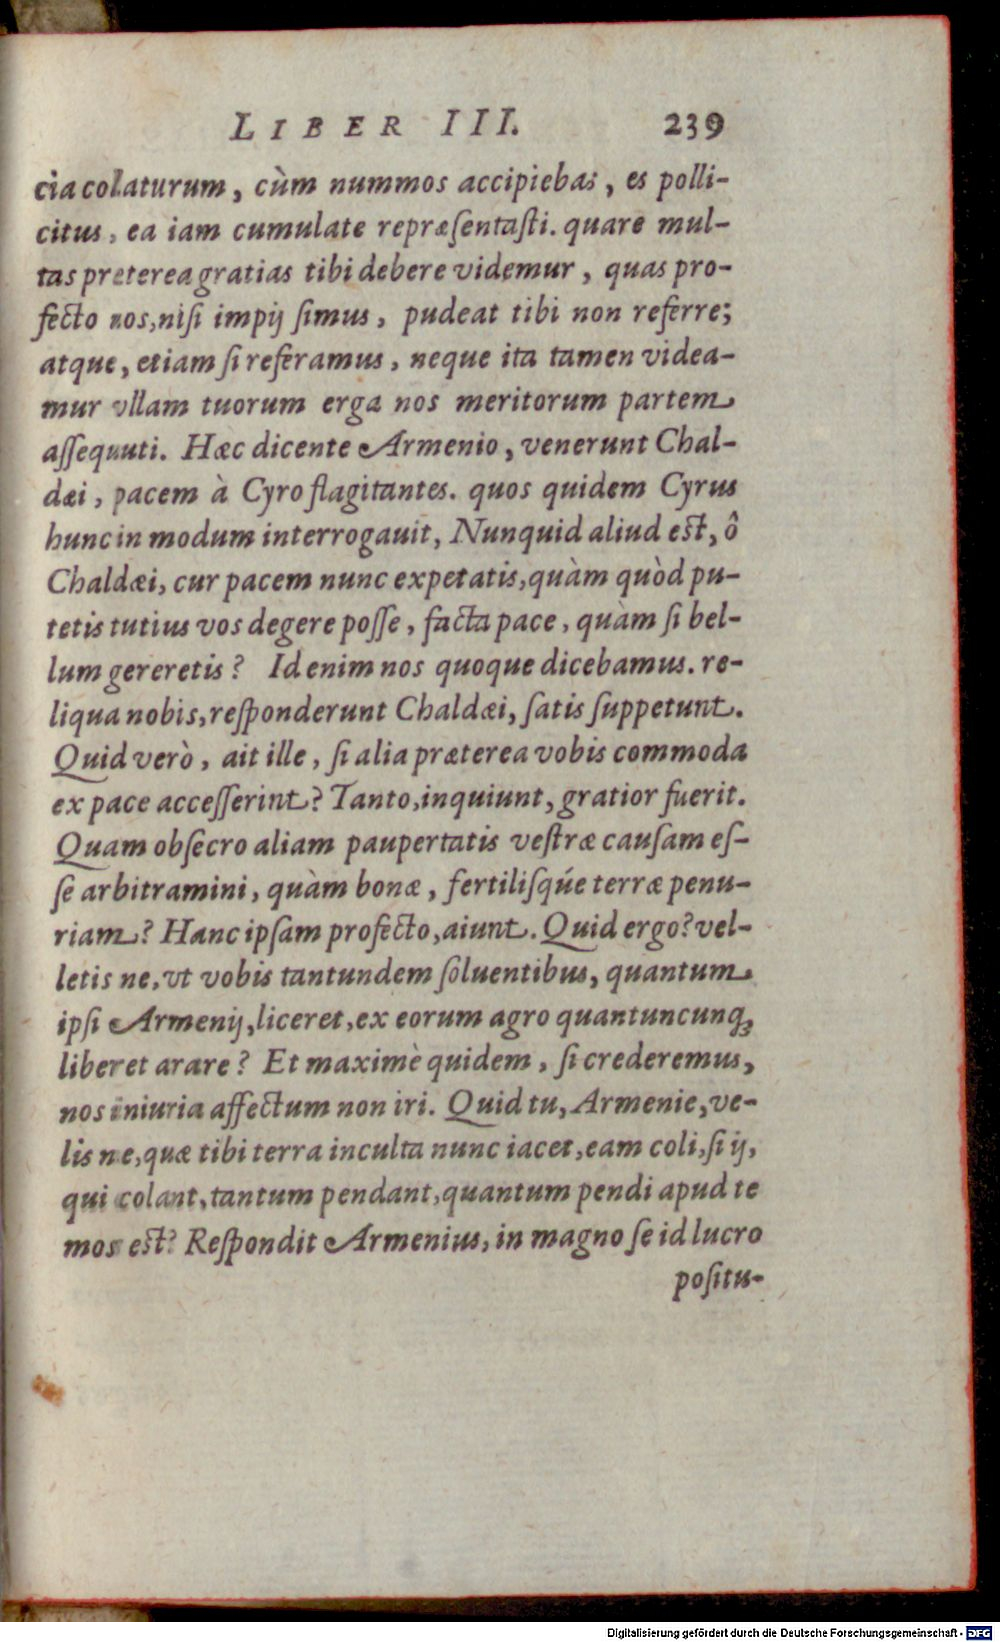 LIBER III. 239
cia colaturum, cùm nummos accipiebas, es polli-
citus, ea iam cumulate repræſentaſti. quare mul-
tas pretereagratias tibi debere videmur, quas pro-
fecto nos, niſi impij ſimus, pudeat tibi non referre;
atque, etiam ſi referamus, neque ita tamen videa-
mur vllam tuorum erga nos meritorum partem
aſſequuti. Hæc dicente Armenio, venerunt Chal-
dæi, pacem à Cyro flagitantes. quos quidem Cyrus
hunc in modum interrogauit, Nunquid aliud est, ô
Chaldæi, cur pacem nunc expetatis, quàm quòd pu-
tetis tutius vos degere poſſe, facta pace, quàm ſi bel-
lum gereretis? Id enim nos quoque dicebamus. re-
liqua nobis, reſponderunt Chaldæi, ſatis ſuppetunt.
Quid verò, ait ille, ſi alia præterea vobis commoda
ex pace acceſſerint? Tanto, inquiunt, gratior fuerit.
Quam obſecro aliam paupertatis veſtræ cauſam eſ-
ſe arbitramini, quàm bonæ, fertiliſqúe terræ penu-
riam? Hanc ipſam profecto, aiunt. Quid ergo? vel-
letis ne, vt vobis tantundem ſoluentibus, quantum
ipſi Armenij, liceret, ex eorum agro quantuncunq;
liberet arare? Et maximè quidem, ſi crederemus,
nos iniuria affectum non iri. Quid tu, Armenie, ve-
lis ne, quæ tibi terra inculta nunc iacet, eam coli, ſi ij,
qui colant, tantum pendant, quantum pendi apud te
mos est? Reſpondit Armenius, in magno ſe id lucro
poſitu-
Digitalisierung gefördert durch die Deutsche Forschungsgemeinschaft - DFG